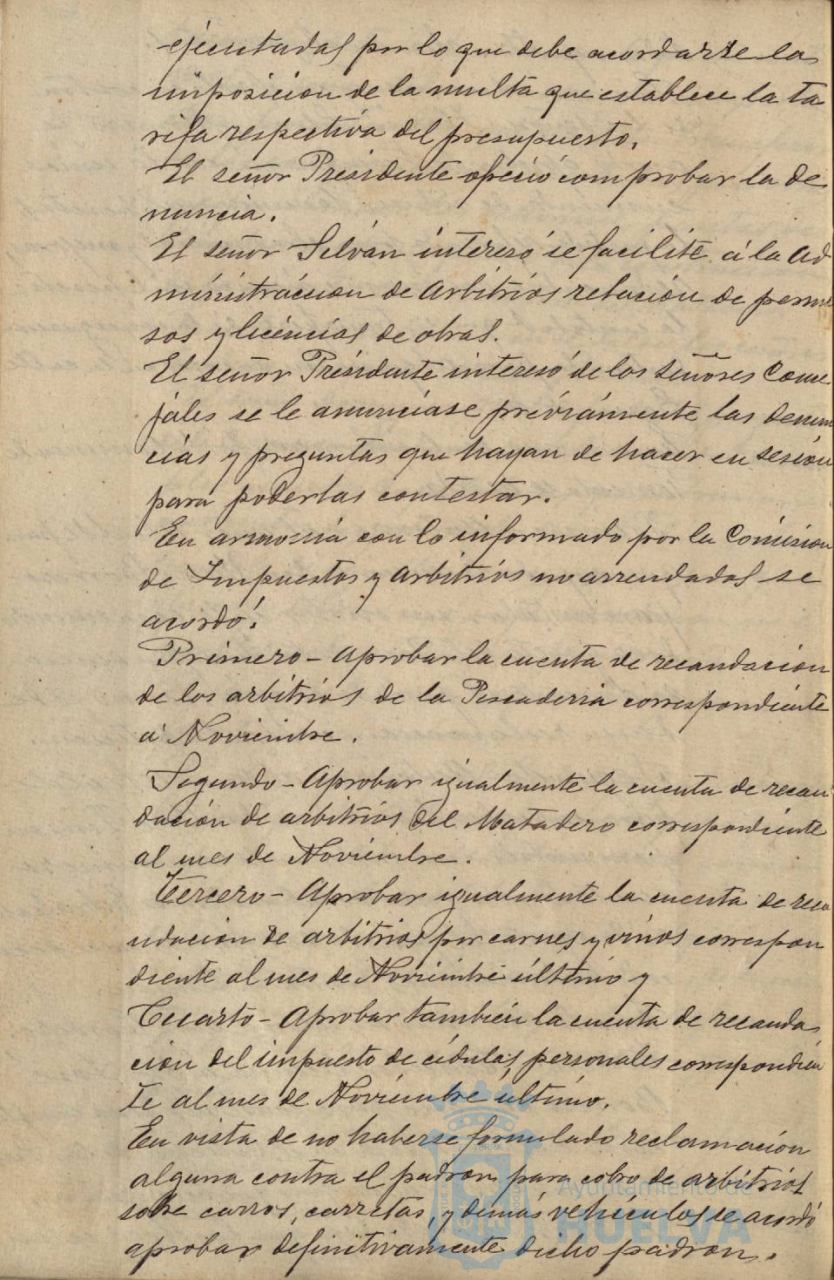 ejecutadas por lo que debe acordarse la
imposicion de la multa que establece la ta
rifa respectiva del presupuesto.
El señor Presidente ofreció comprobar la de
nuncia.
El señor Selván interesó se facilite á la Ad
ministracion de Arbitrios relación de permi
sos y licencias de obras.
El señor Presidente interesó de los señores Conce
jales se le anunciase préviamente las denun
cias y preguntas que hayan de hacer en sesión
para poderlas contestar.
En armonia con lo informado por la Comision
de Impuestos y Arbitrios no arrendados se
acordó:
Primero - Aprobar la cuenta de recaudacion
de los arbitrios de la Pescaderia correspondiente
á Noviembre.
Segundo - Aprobar igualmente la cuenta de recau
dación de arbitrios del Matadero correspondiente
al mes de Noviembre.
Tercero - Aprobar igualmente la cuenta de reca
udacion de arbitrios por carnes y vinos correspon
diente al mes de Noviembre último y
Cuarto - Aprobar también la cuenta de recauda
cion del impuesto de cédulas personales correspondien
te al mes de Noviembre último.
En vista de no haberse formulado reclamación
alguna contra el padron para cobro de arbitrios
sobre carros, carretas, y demás vehiculos se acordó
aprobar definitivamente dicho padron.
Ayuntamiento de
HUELVA